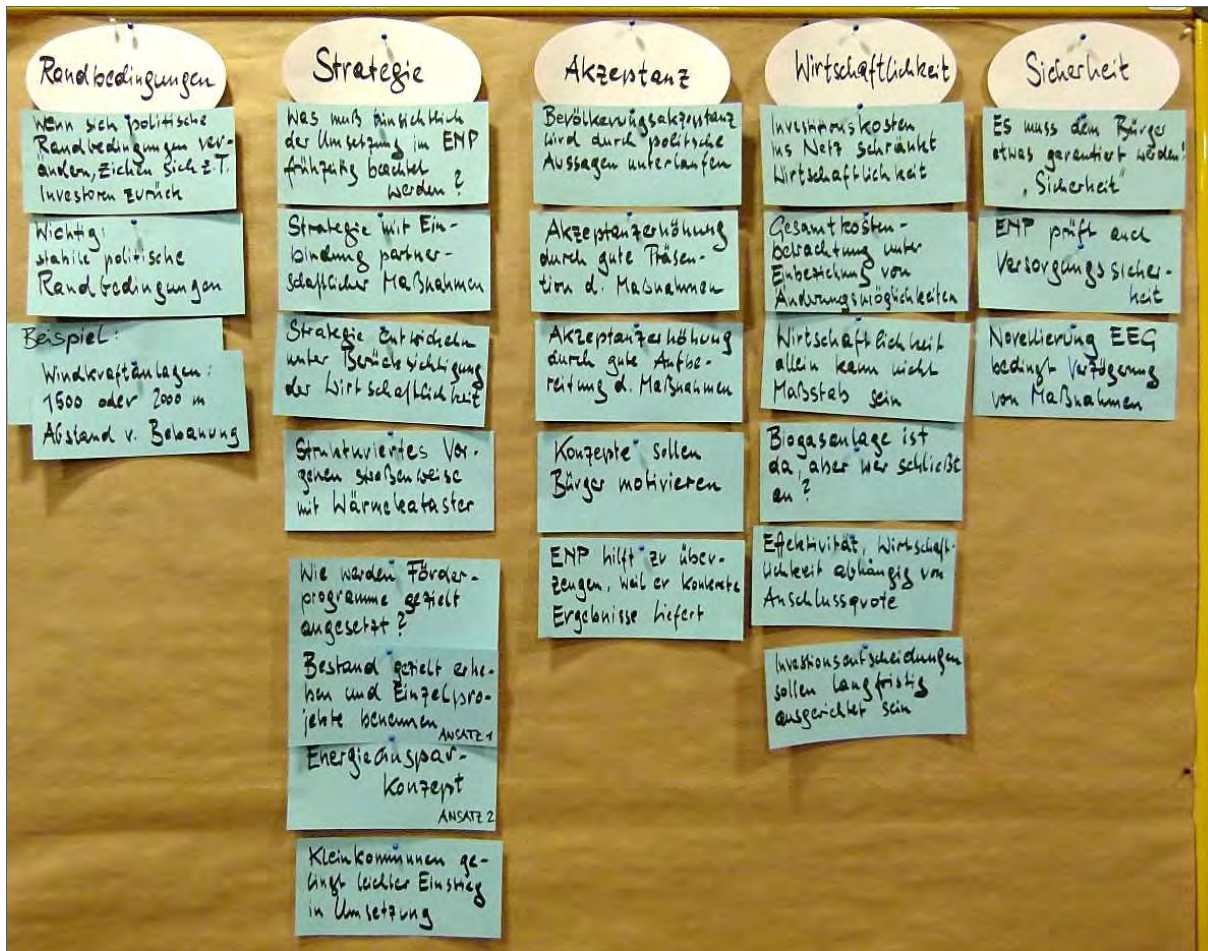 Randbedingungen
Wenn sich politische
Randbedingungen ver-
ändern, ziehen sich z.T.
Investoren zurück
Wichtig:
stabile politische
Randbedingungen
Beispiel:
Windkraftanlagen:
1500 oder 2000 m
Abstand v. Bebauung
Strategie
Was muß hinsichtlich
der Umsetzung im ENP
frühzeitig beachtet
werden?
Strategie mit Ein-
bindung partner-
schaftlicher Maßnahmen
Strategie Entwickeln
unter Berücksichtigung
der Wirtschaftlichkeit
Strukturiertes Vor-
gehen straßenweise
mit Wärmekataster
Wie werden Förder-
programme gezielt
angesetzt?
Bestand gezielt erhe-
ben und Einzelpro-
jekte benennen
ANSATZ 1
Energieeinspar-
Konzept
ANSATZ 2
Kleinkommunen ge-
lingt leichter Einstieg
in Umsetzung
Akzeptanz
Bevölkerungsakzeptanz
wird durch politische
Aussagen unterlaufen
Akzeptanzerhöhung
durch gute Präsen-
tion d. Maßnahmen
Akzeptanzerhöhung
durch gute Aufbe-
reitung d. Maßnahmen
Konzepte sollen
Bürger motivieren
ENP hilft zu über-
zeugen, weil er konkrete
Ergebnisse liefert
Wirtschaftlichkeit
Investitionskosten
ins Netz schränkt
Wirtschaftlichkeit
Gesamtkosten-
betrachtung unter
Einbeziehung von
Änderungsmöglichkeiten
Wirtschaftlichkeit
allein kann nicht
Maßstab sein
Biogasanlage ist
da, aber wer schließt
an?
Effektivität, Wirtschaft-
lichkeit abhängig von
Anschlussquote
Investionsentscheidungen
sollen langfristig
ausgerichtet sein
Sicherheit
Es muss dem Bürger
etwas garantiert werden!
"Sicherheit"
ENP prüft auch
Versorgungssicher-
heit
Novellierung EEG
bedingt Verzögerung
von Maßnahmen